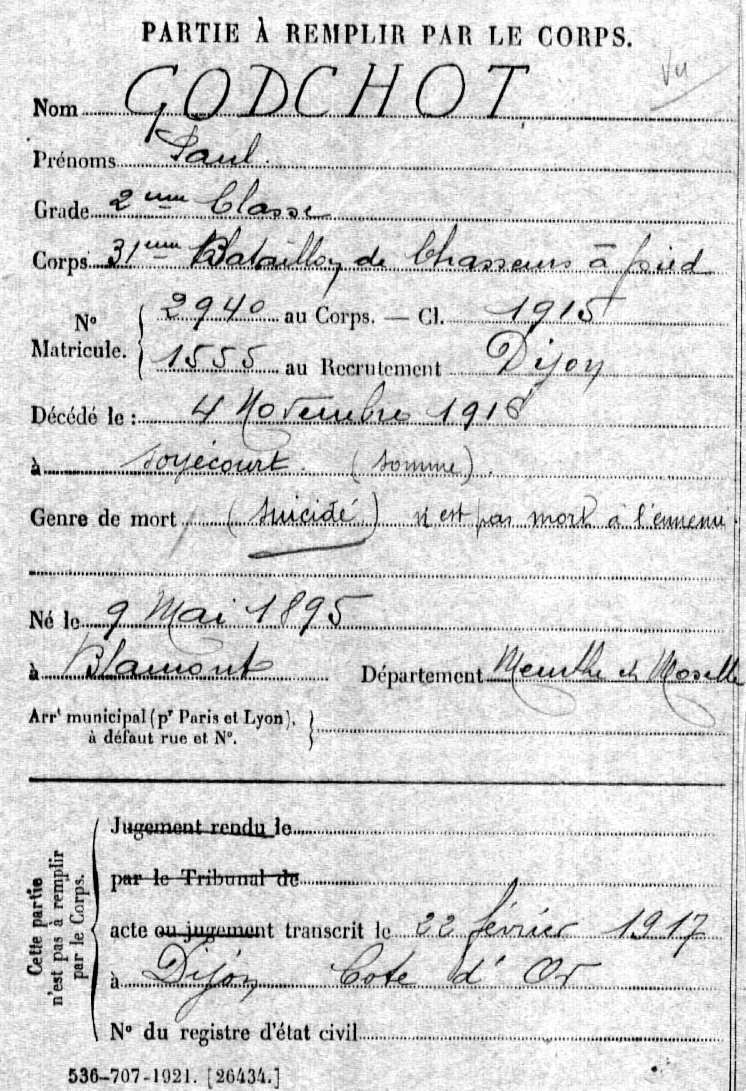 PARTIE À REMPLIR PAR LE CORPS.
Vu
Nom GODCHOT
Prénoms Paul.
Grade 2ème Classe
Corps 31ème Bataillon de Chasseurs à pied
N° Matricule. { 2940 au Corps. — Cl. 1915
1555 au Recrutement Dijon
Décédé le : 4 Novembre 1916
à Soyécourt. (Somme).
Genre de mort (Suicidé) n'est pas mort à l'ennemi
Né le 9 Mai 1895
à Blamont Département Meurthe et Moselle
Arrt municipal (pr Paris et Lyon),
à défaut rue et N°. }
Cette partie
n'est pas à remplir
par le Corps.
Jugement rendu le
par le Tribunal de
acte ou jugement transcrit le 22 février 1917
à Dijon Cote d'Or
N° du registre d'état civil
536-707-1921. [26434.]